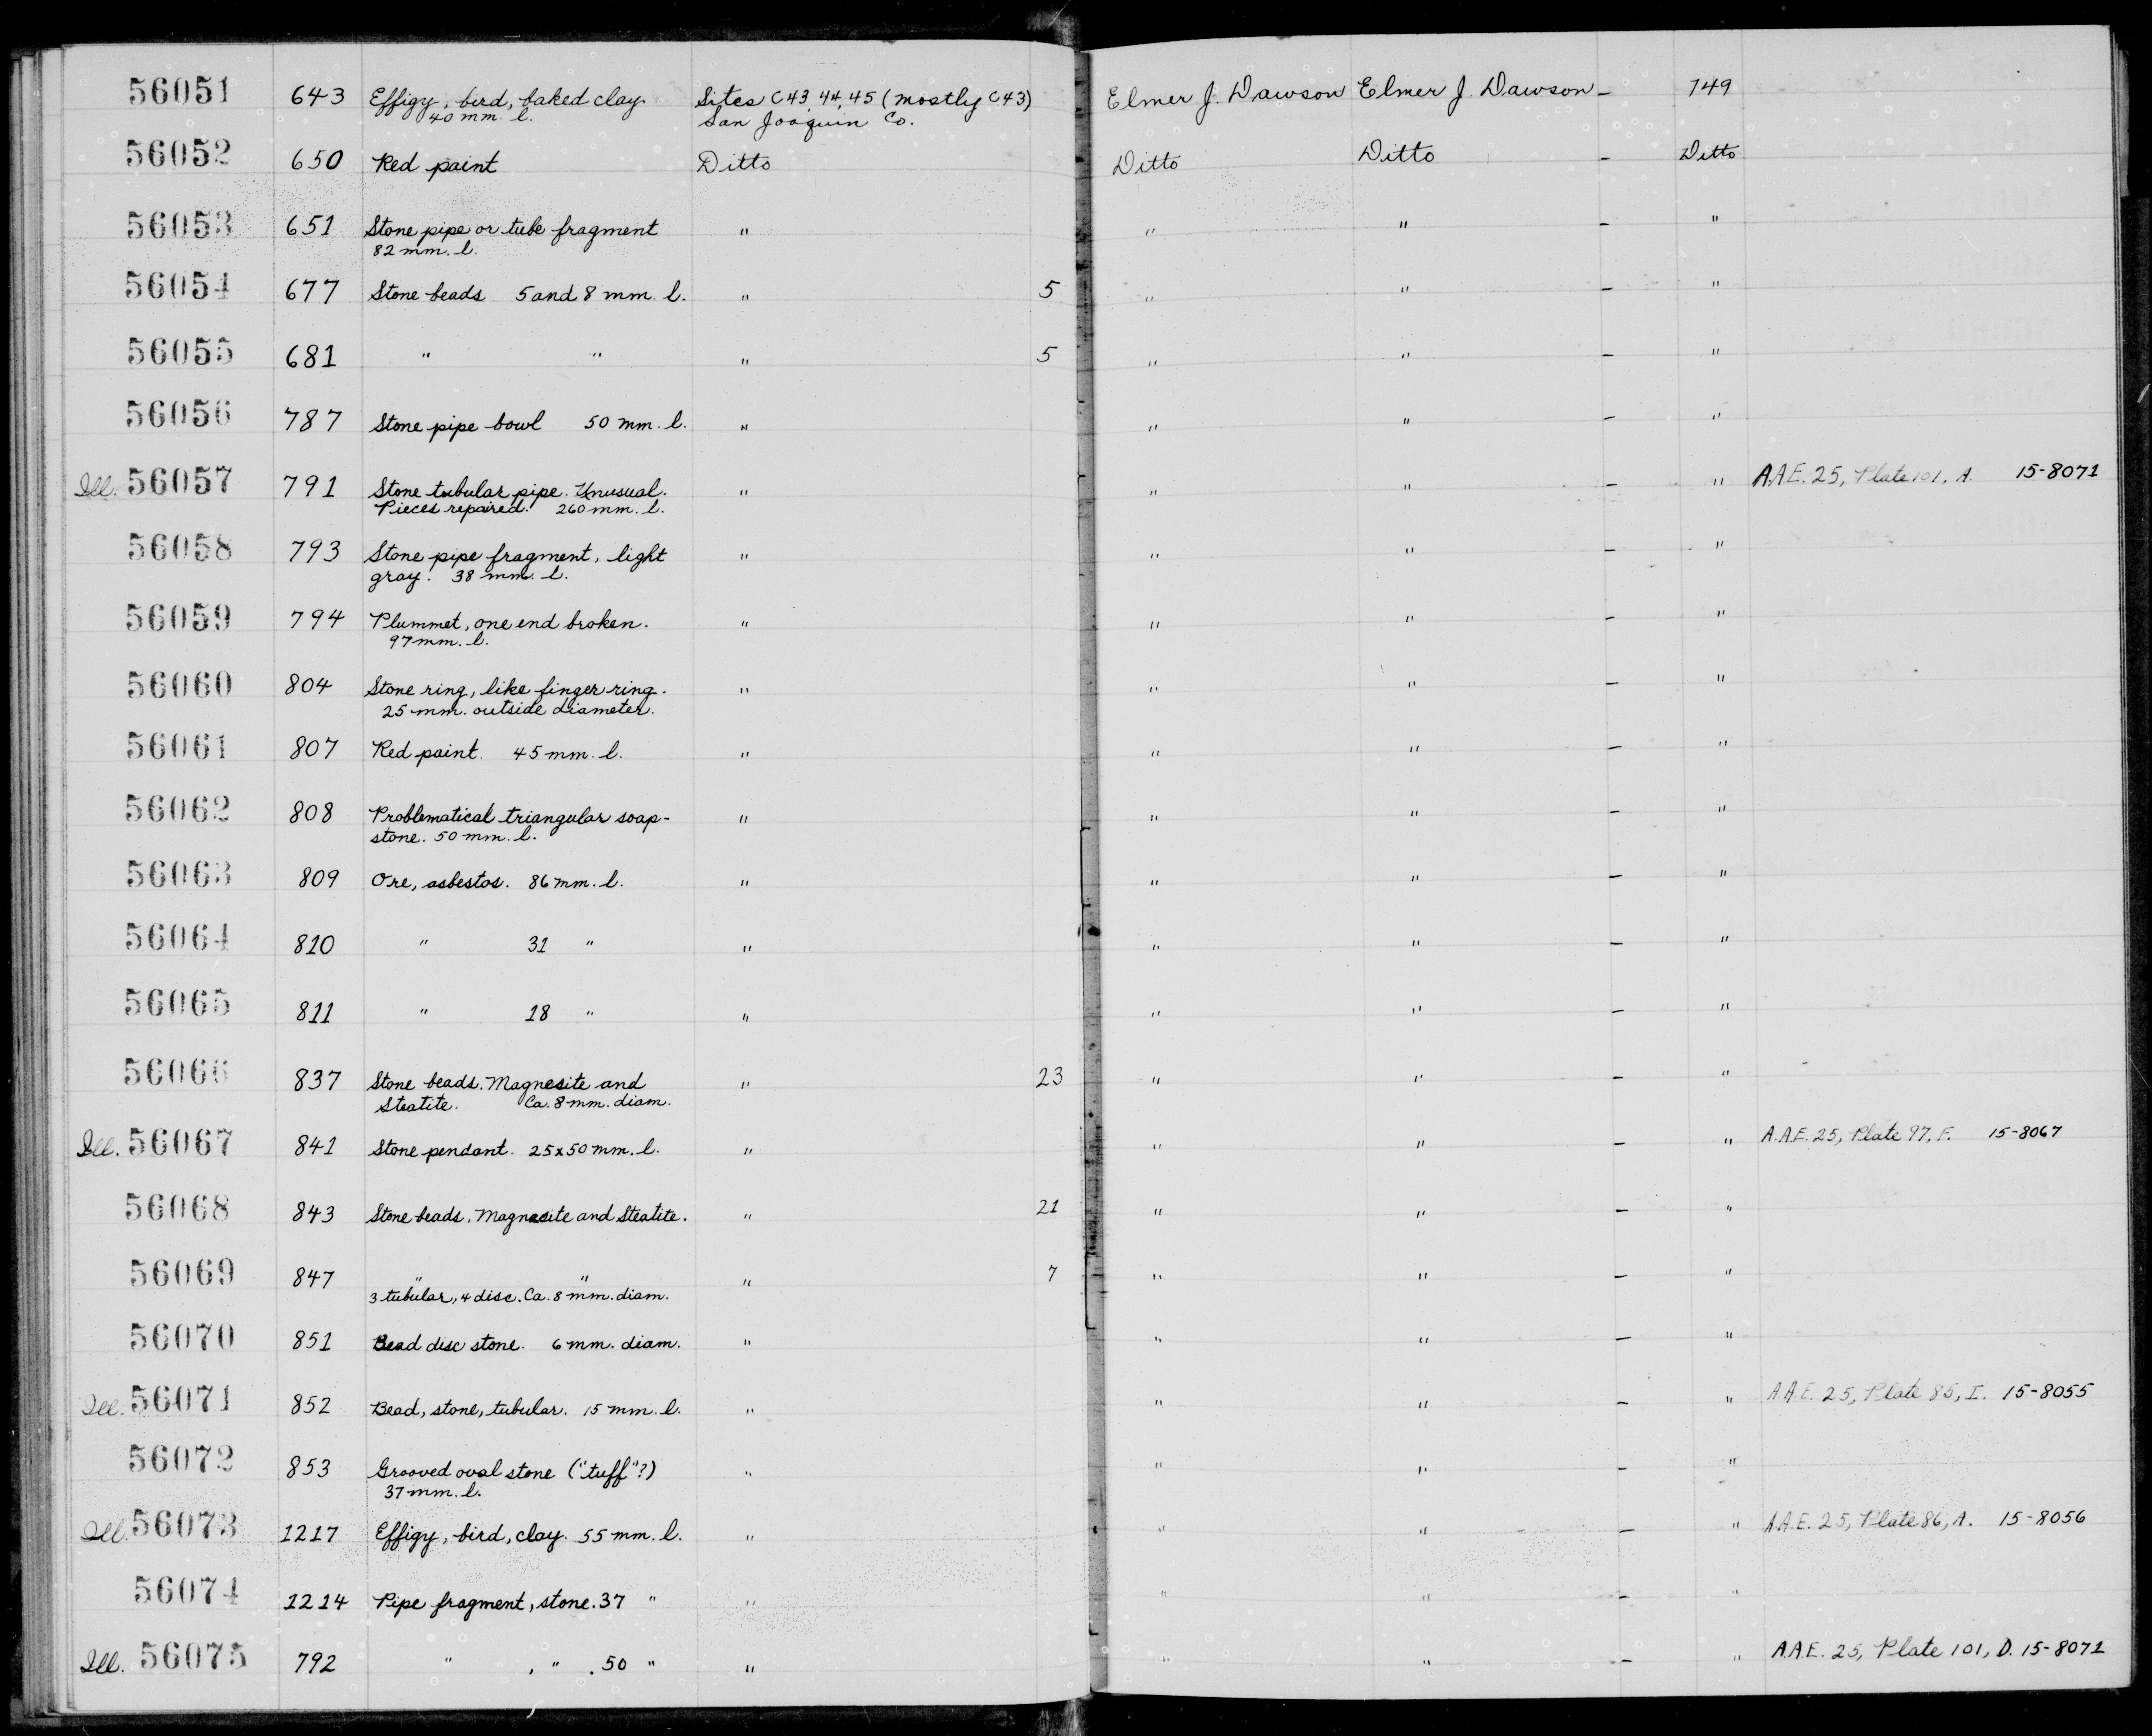 56051 643 Effigy, bird, baked clay. Sites C43, 44, 45 (mostly C43) Elmer J. Dawson Elmer J. Dawson - 749
40 mm. l. San Joaquin Co.
56052 650 Red paint Ditto Ditto Ditto - Ditto
56053 651 Stone pipe or tube fragment " " " - "
82 mm. l.
56054 677 Stone beads 5 and 8 mm. l. " 5 " " - "
56055 681 " " " 5 " " - "
56056 787 Stone pipe bowl 50 mm. l. " " " - "
Ill. 56057 791 Stone tubular pipe. Unusual. " " " - " A.A.E. 25, Plate 101, A. 15-8071
Pieces repaired. 260 mm. l.
56058 793 Stone pipe fragment, light " " " - "
gray. 38 mm. l.
56059 794 Plummet, one end broken. " " " - "
97 mm. l.
56060 804 Stone ring, like finger ring. " " " - "
25 mm. outside diameter.
56061 807 Red paint. 45 mm. l. " " " - "
56062 808 Problematical triangular soap- " " " - "
stone. 50 mm. l.
56063 809 Ore, asbestos. 86 mm. l. " " " - "
56064 810 " 31 " " " " - "
56065 811 " 18 " " " " - "
56066 837 Stone beads. Magnesite and " 23 " " - "
Steatite. Ca. 8 mm. diam.
Ill. 56067 841 Stone pendant. 25x50 mm. l. " " " - " A.A.E. 25, Plate 97, F. 15-8067
56068 843 Stone beads. Magnesite and Steatite. " 21 " " - "
56069 847 " " " 7 " " - "
3 tubular, 4 disc. Ca. 8 mm. diam.
56070 851 Bead disc stone. 6 mm. diam. " " " - "
Ill. 56071 852 Bead, stone, tubular. 15 mm. l. " " " - " A.A.E. 25, Plate 85, I. 15-8055
56072 853 Grooved oval stone ("tuff"?) " " " - "
37 mm. l.
Ill. 56073 1217 Effigy, bird, clay. 55 mm. l. " " " - " A.A.E. 25, Plate 86, A. 15-8056
56074 1214 Pipe fragment, stone. 37 " " " " - "
Ill. 56075 792 " , " . 50 " " " " - " A.A.E. 25, Plate 101, D. 15-8071